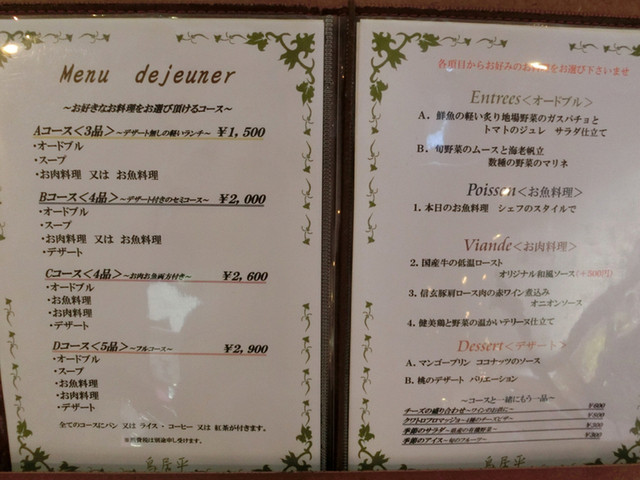 Menu dejeuner
～お好きなお料理をお選び頂けるコース～
Aコース<3品>～デザート無しの軽いランチ～ ¥1,500
・オードブル
・スープ
・お肉料理 又は お魚料理
Bコース<4品>～デザート付きのセミコース～ ¥2,000
・オードブル
・スープ
・お肉料理 又は お魚料理
・デザート
Cコース<4品>～お肉お魚両方付き～ ¥2,600
・オードブル
・お魚料理
・お肉料理
・デザート
Dコース<5品>～フルコース～ ¥2,900
・オードブル
・スープ
・お魚料理
・お肉料理
・デザート
全てのコースにパン 又は ライス・コーヒー 又は 紅茶が付きます。
鳥居平
各項目からお好みのお料理をお選び下さいませ
Entrees<オードブル>
A. 鮮魚の軽い炙り地場野菜のガスパチョと
トマトのジュレ サラダ仕立て
B. 旬野菜のムースと海老帆立
数種の野菜のマリネ
Poisson<お魚料理>
1. 本日のお魚料理 シェフのスタイルで
Viande<お肉料理>
2. 国産牛の低温ロースト
オリジナル和風ソース(+500円)
3. 信玄豚肩ロース肉の赤ワイン煮込み
オニオンソース
4. 健美鶏と野菜の温かいテリーヌ仕立て
Dessert<デザート>
A. マンゴープリン ココナッツのソース
B. 桃のデザート バリエーション
～コースと一緒にもう一品～
チーズの盛り合わせ～ワインのお供に～ ¥600
クワトロフロマッジョ～4種のチーズピザ～ ¥500
季節のサラダ～県産の有機野菜～ ¥300
季節のアイス～旬のフルーツ～ ¥300
鳥居平